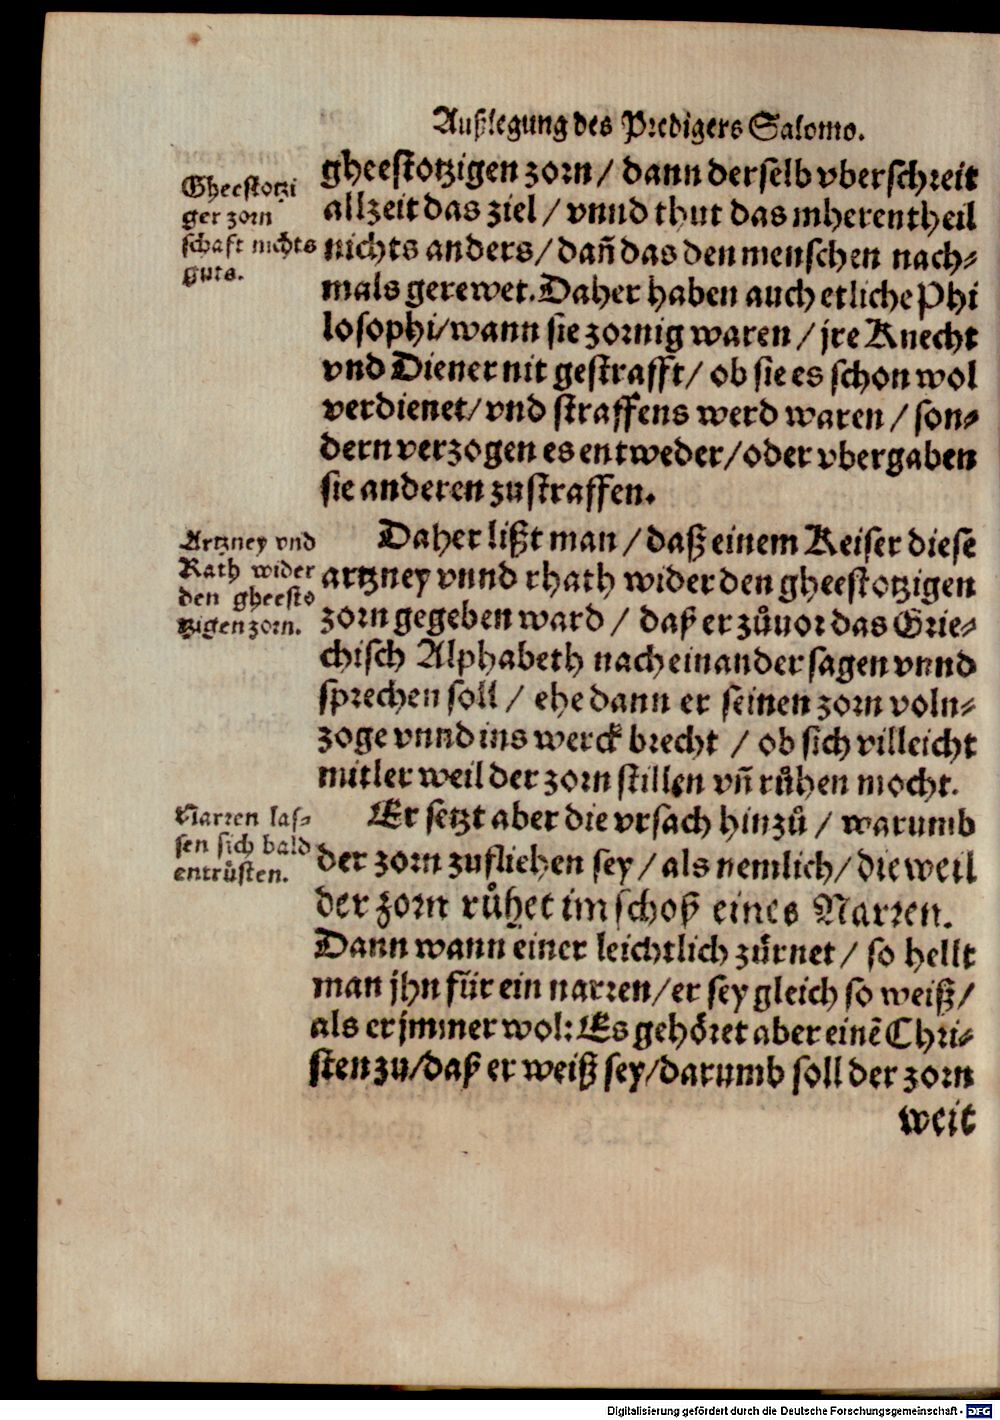 Außlegung des Predigers Salomo.
gheestotzigen zorn / dann derselb vberschreit
allzeit das ziel / vnnd thut das mherentheil
nichts anders / dañ das den menschen nach⸗
mals gerewet. Daher haben auch etliche Phi
losophi / wann sie zornig waren / jre Knecht
vnd Diener nit gestrafft / ob sie es schon wol
verdienet / vnd straffens werd waren / son⸗
dern verzogen es entweder / oder vbergaben
sie anderen zustraffen.
Gheestotzi
ger zorn
schaft nichts
guts.
Daher lißt man / daß einem Keiser diese
artzney vnnd rhath wider den gheestotzigen
zorn gegeben ward / daß er zůuor das Grie⸗
chisch Alphabeth nach einander sagen vnnd
sprechen soll / ehe dann er seinen zorn voln⸗
zoge vnnd ins werck brecht / ob sich villeicht
mitler weil der zorn stillen vñ růhen mocht.
Artzney vnd
Rath wider
den gheesto
tzigen zorn.
Er setzt aber die vrsach hinzů / warumb
der zorn zufliehen sey / als nemlich / die weil
der zorn růhet im schoß eines Narren.
Dann wann einer leichtlich zürnet / so hellt
man jhn für ein narren / er sey gleich so weiß /
als er jmmer wol: Es gehöret aber einẽ Chri⸗
sten zu / daß er weiß sey / darumb soll der zorn
weit
Narren las⸗
sen sich bald
entrůsten.
Digitalisierung gefördert durch die Deutsche Forschungsgemeinschaft - DFG